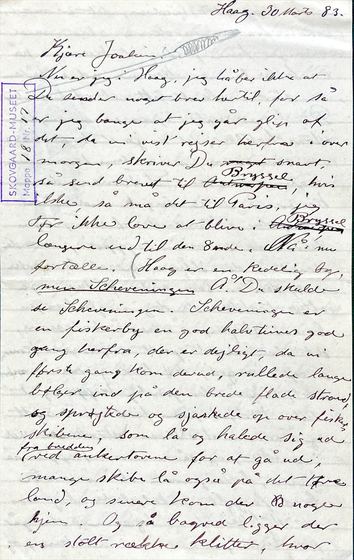 Haag. 30 Marts 83.
Kjære Joakim!
Nu er jeg i Haag, jeg håber ikke at
Du sender noget brev hertil, for så
er jeg bange at jeg går glip af
det, da vi vist rejser herfra i over
morgen, skriver Du snart,
så send brevet til Antwerpen Bryssel, hvis
ikke så må det til Paris, jeg
tør ikke love at blive i Antwerpen Bryssel
længere end til den 8nde. Nå, nu
fortælle. (Haag er en kedelig by,
men Scheveningen Å! Du skulde
se Scheveningen. Scheveningen er
en fiskerby en god halvtimes god
gang herfra, der er dejligt, da vi
første gang kom derud, rullede lange
bølger ind på den brede flade strand,
og sprøjtede og sjaskede op over fiske
skibene, som lå og halede sig ud
fra bredden
(ved ankertovene for at gå ud,
mange skibe lå også på det tørre
land, og senere kom der nogle
hjem. Og så bagved ligger der
en stolt række klitter hvor
SKOVGAARD-MUSEET
Mappe 18 Nr. 17